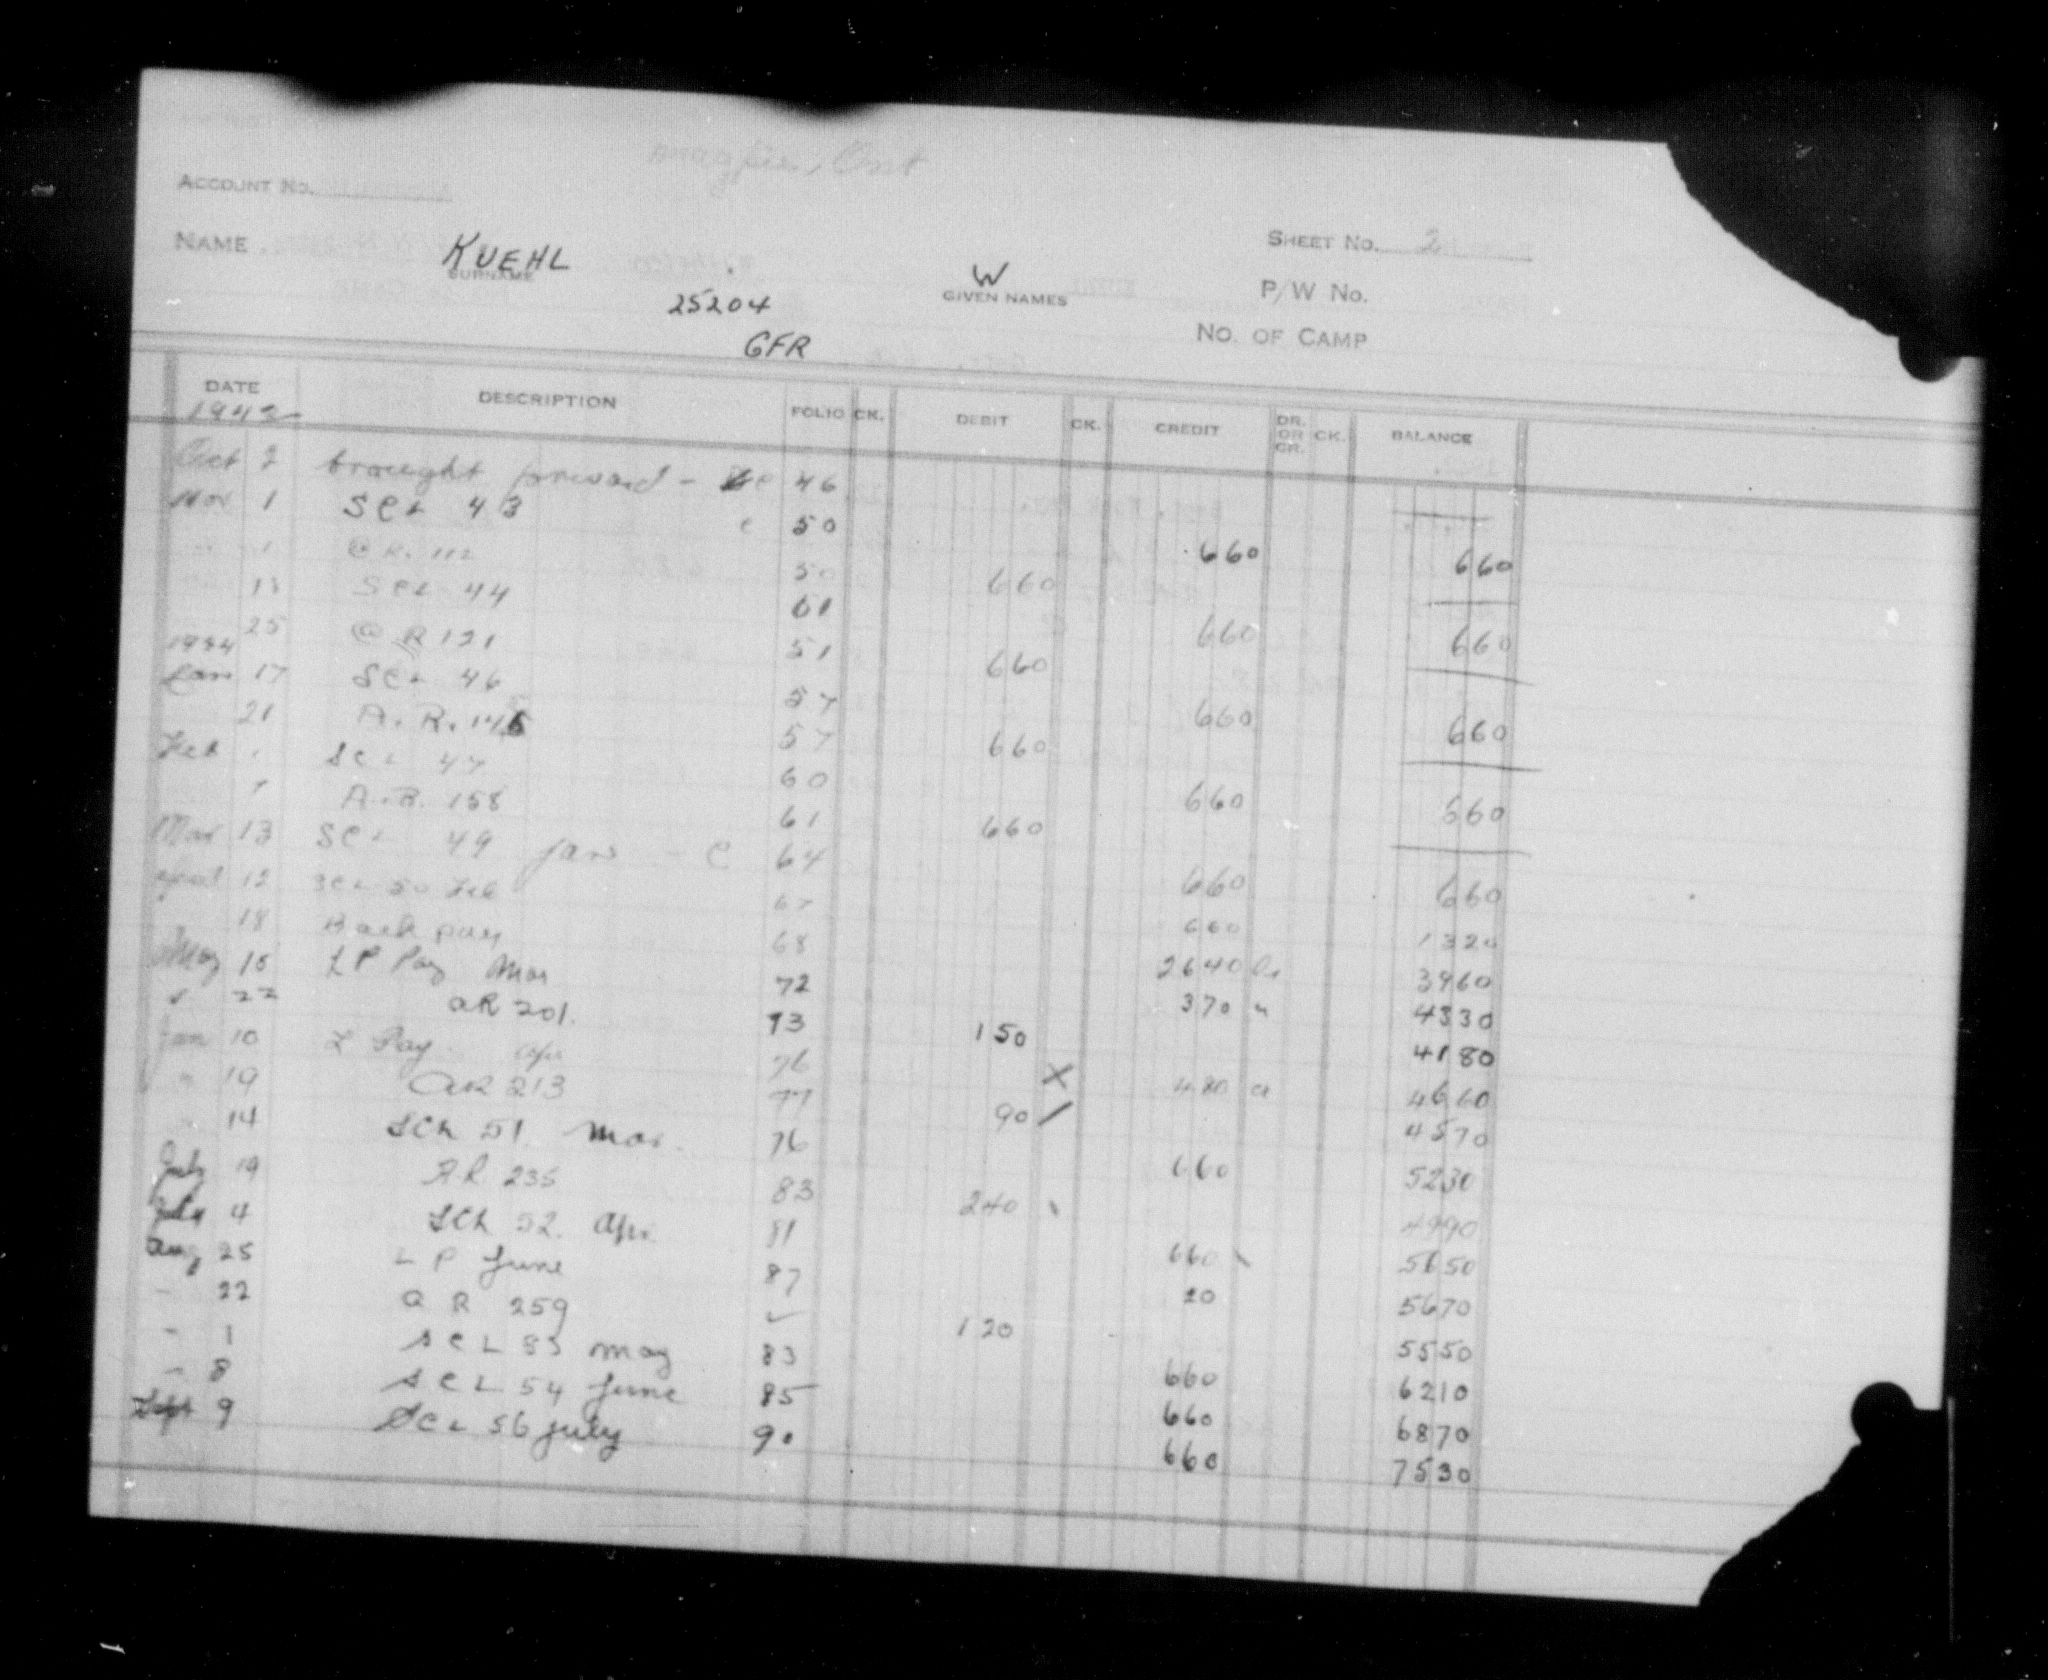 Magpie, Ont
ACCOUNT NO.
SHEET NO. 2
NAME KUEHL W
SURNAME GIVEN NAMES
P/W No.
25204
NO. OF CAMP
GFR
DATE DESCRIPTION FOLIO CK. DEBIT CK. CREDIT DR. OR CR. CK. BALANCE
1943
Oct 2 brought forward - 46
Nov 1 SCL 43 c 50 660 660
" 1 @ R. 112 50 660
13 SCL 44 51 660 660
25 @ R 121 51 660
1944
Jan 17 SCL 46 57 660 660
21 A. R. 145 57 660
Feb 1 SCL 47 60 660 660
7 A. R. 158 61 660
Mar 13 SCL 49 Jan - C 64 660 660
April 12 SCL 50 Feb 67 660 1320
18 Back pay 68 2640 3960
May 15 L P Pay Mar 72 370 " 4330
" 22 aR 201. 73 150 4180
Jun 10 L Pay Apr 76 X 480 4660
" 19 aR 213 77 90 / 4570
" 14 SCL 51 Mar. 76 660 5230
July 19 AR 235 83 240 4990
July 4 SCL 52 Apr. 81 660 5650
Aug 25 L P June 87 20 5670
" 22 a R 259 ✓ 120 5550
" 1 SCL 53 May 83 660 6210
" 8 SCL 54 June 85 660 6870
Sept 9 SCL 56 July 90 660 7530